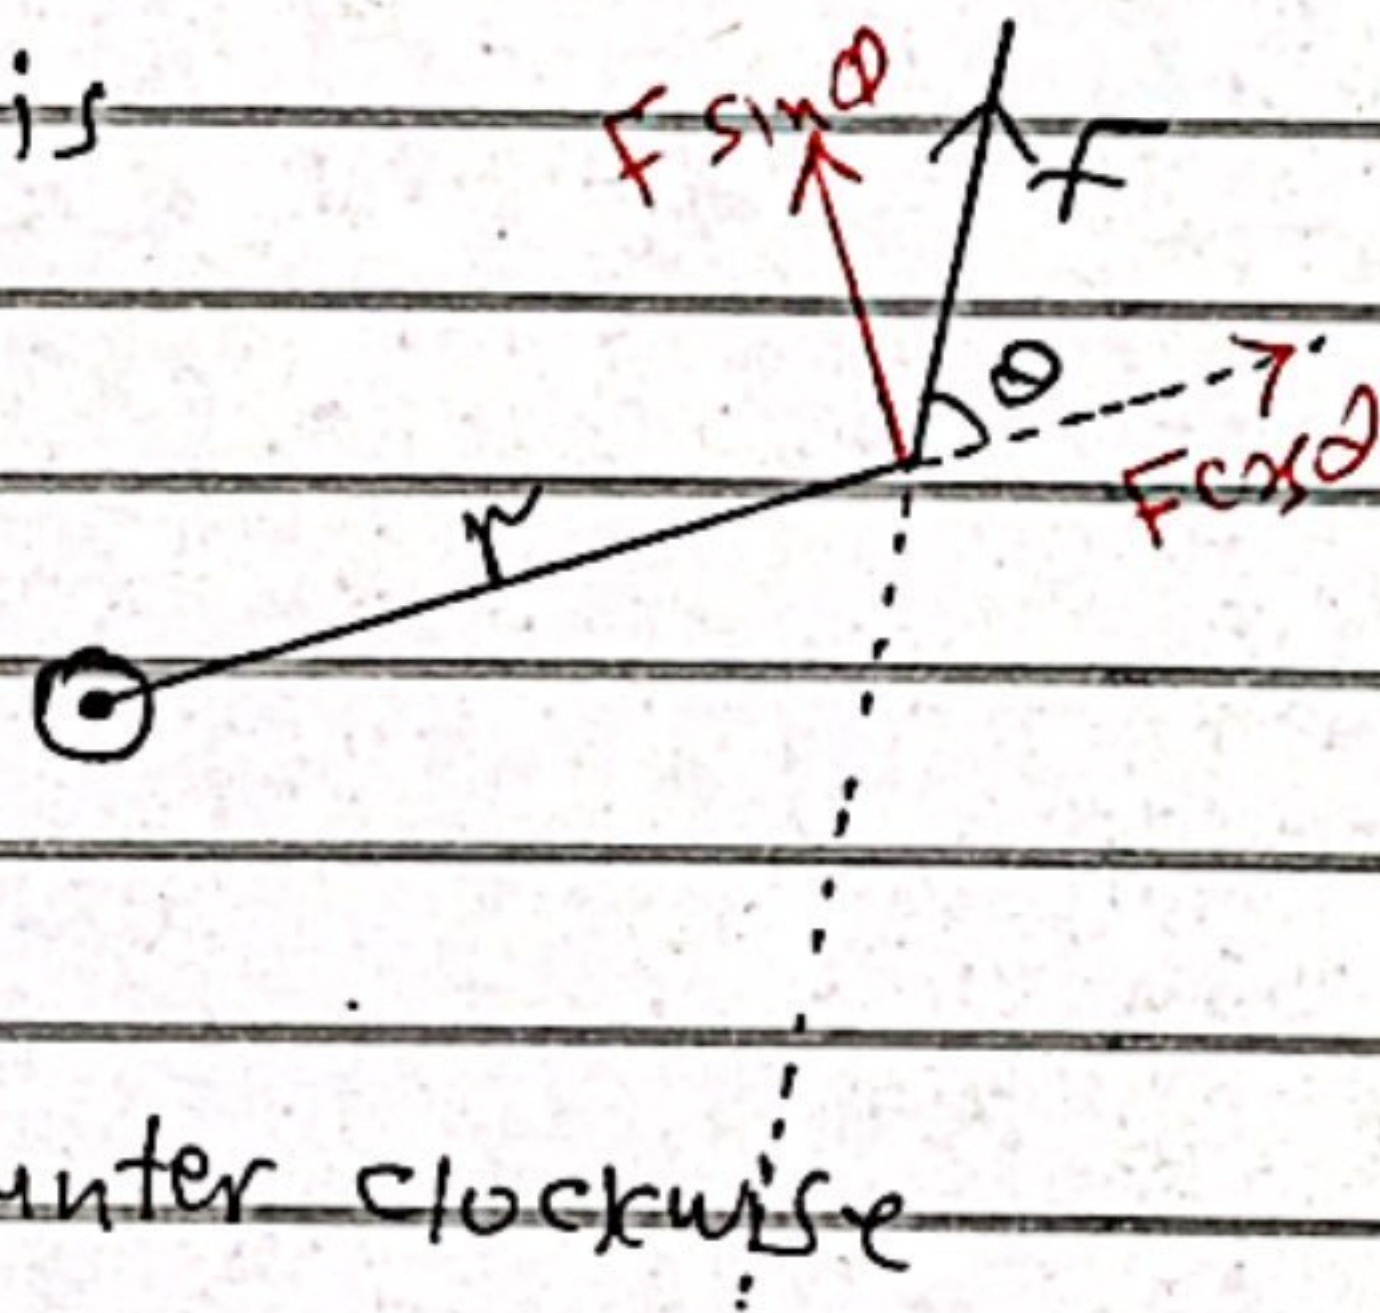 is
F sinθ
F
θ
F cosθ
r
unter clockwise